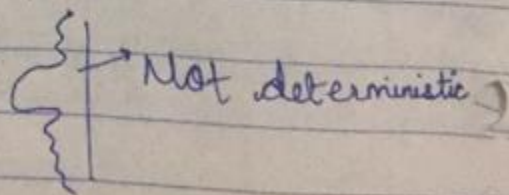 Not deterministic